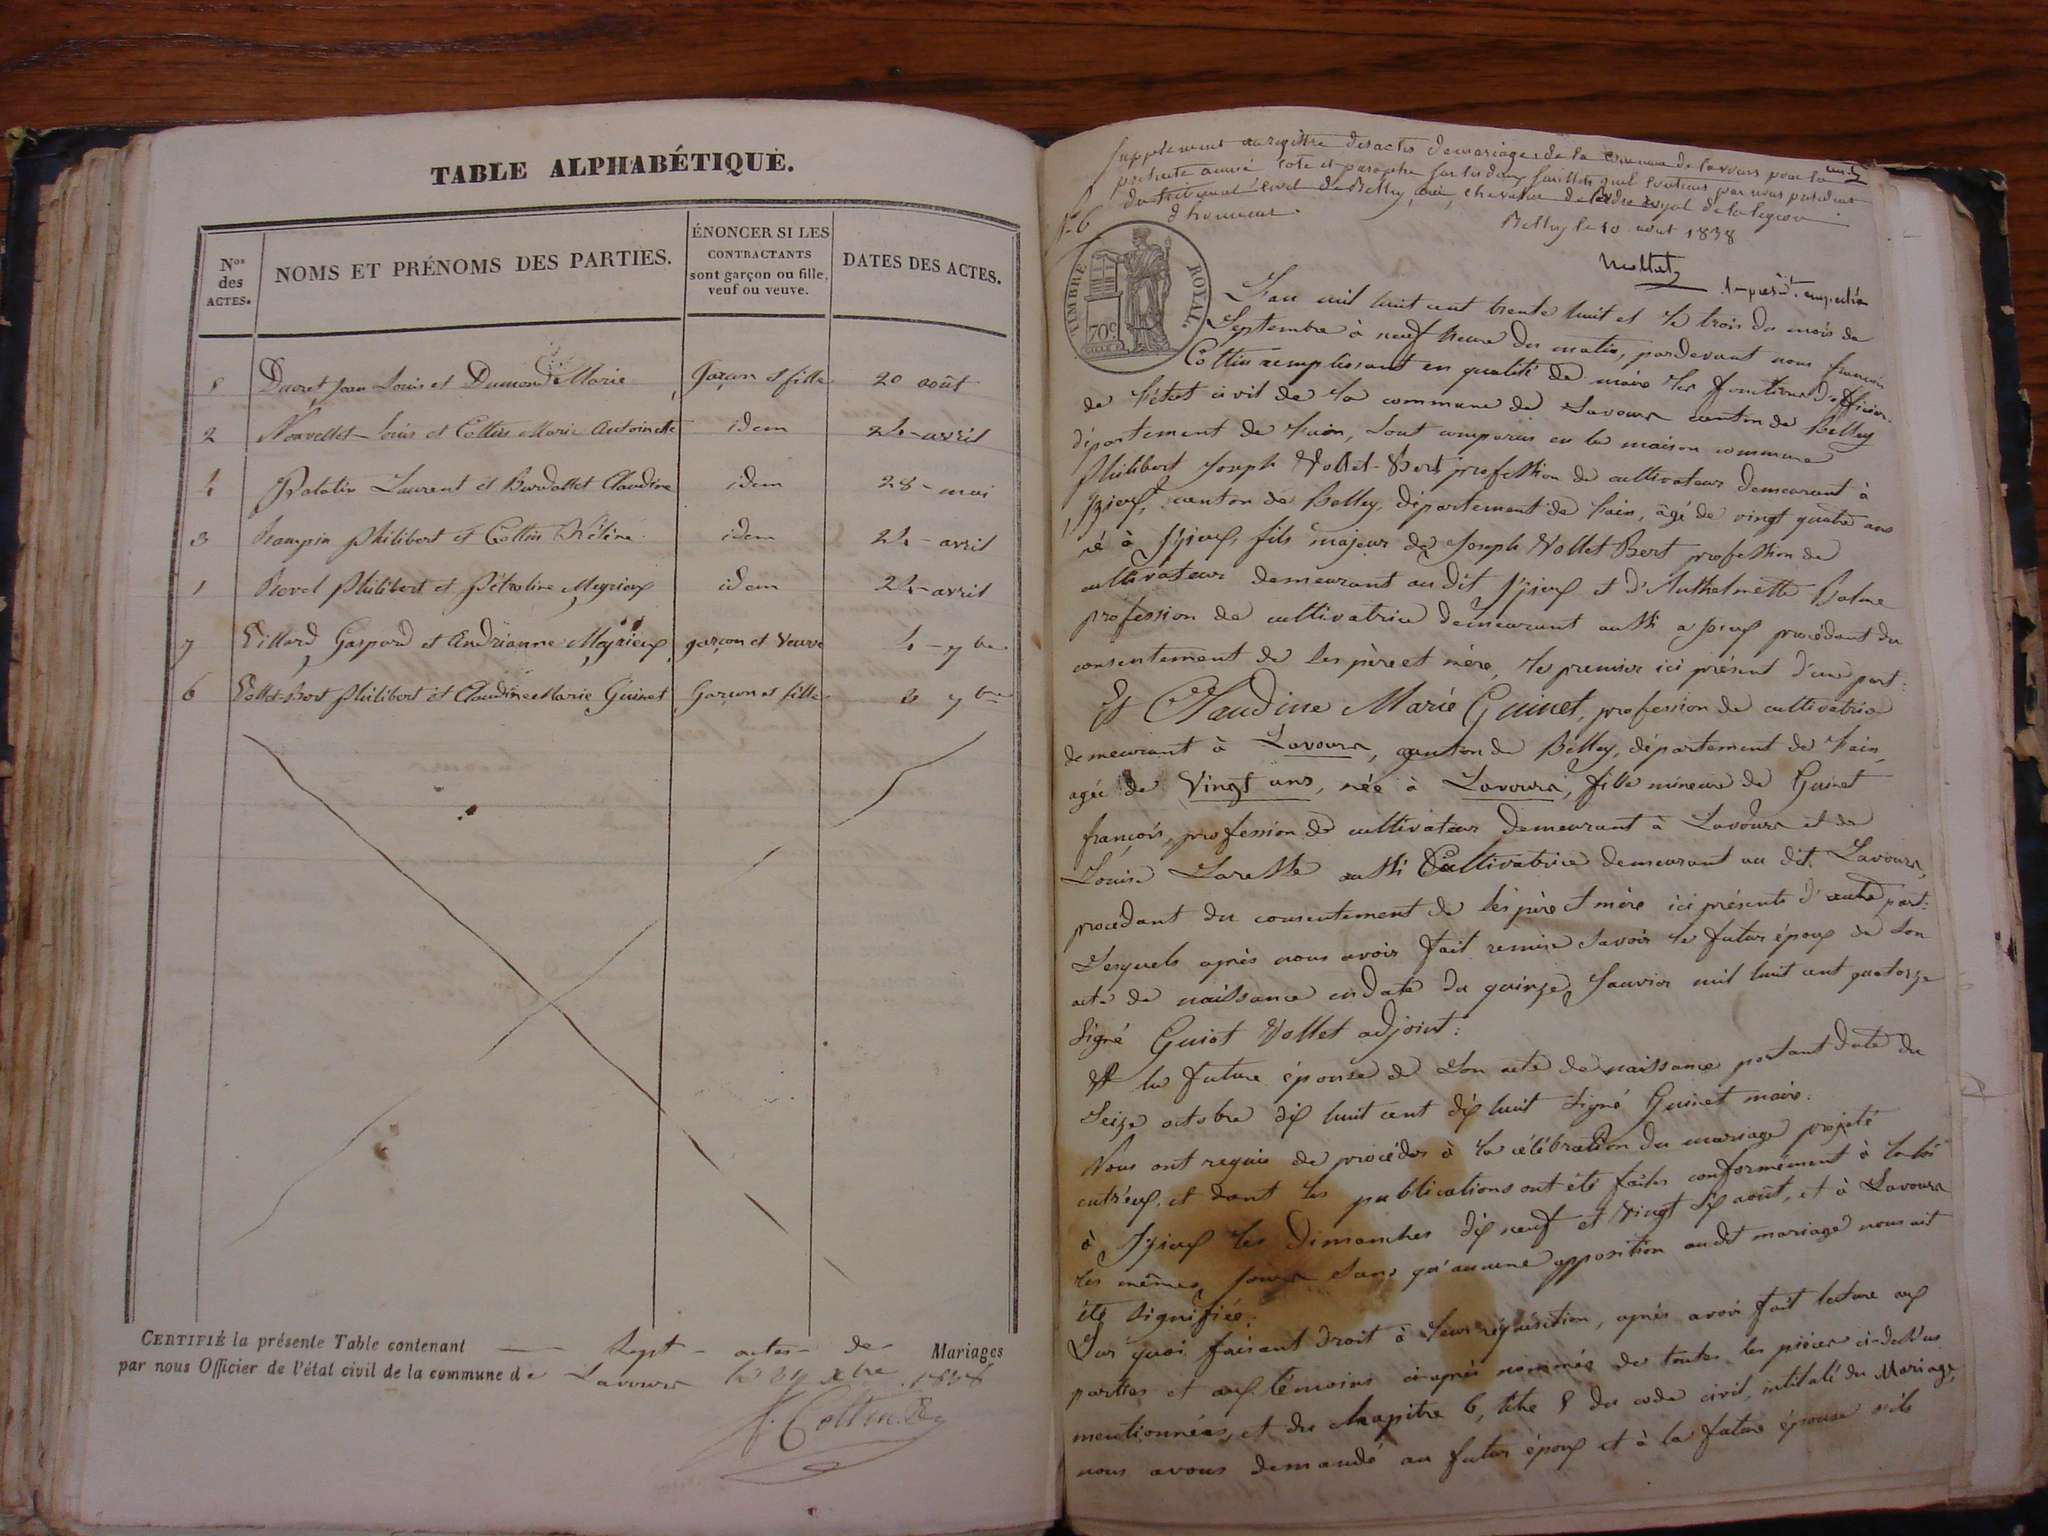 TABLE ALPHABÉTIQUE.
Nos des ACTES.
NOMS ET PRÉNOMS DES PARTIES.
ÉNONCER SI LES CONTRACTANTS sont garçon ou fille, veuf ou veuve.
DATES DES ACTES.
Ducret Jean Louis et Dumond Marie Garçon et fille 20 août
2 Nouvellet Louis et Cottin Marie Antoinette idem 24 avril
4 Laurent et Claudine idem 28 mai
3 Rampin Philibert et Cottin Hélène idem 24 avril
1 Revel Philibert et Pétroline Meyrieux idem 24 avril
7 Villard Gaspard et Andrianne Meyrieux garçon et Veuve 4 7bre
6 Vollet-Bert Philibert et Claudine Marie Guinet Garçon et fille 4 7bre
CERTIFIÉ la présente Table contenant Sept actes de Mariages
par nous Officier de l'état civil de la commune de Lavours le 31 xbre 1838
f. Cottin
Supplement au registre des actes de mariage de la Commune de lavours pour la
présente année coté et paraphé sur les deux feuillets qu'il contient par nous président
du tribunal civil de Belley, chevalier de l'ordre royal de la légion
d'honneur.
Belley le 10 aout 1838
Mollet
f. 6
TIMBRE ROYAL.
70c.
L'an mil huit cent trente huit et le trois du mois de
Septembre à neuf heure du matin, pardevant nous françois
Cottin remplissant en qualité de maire les fonctions d'officier
de l'état civil de la commune de Lavours canton de Belley
département de l'ain, sont comparus en la maison commune
Philibert Joseph Vollet-Bert profession de cultivateur demeurant à
Izieux, canton de Belley, département de l'ain, âgé de vingt quatre ans
né à Izieux, fils majeur de Joseph Vollet Bert profession de
cultivateur demeurant au dit Izieux et d'Anthelmette Balme
profession de cultivatrice demeurant aussi a Izieux procédant du
consentement de ses père et mère, le premier ici présent d'une part:
Et Claudine Marie Guinet, profession de cultivatrice
demeurant à Lavours, canton de Belley, département de l'ain,
agée de Vingt ans, née à Lavours, fille mineure de Guinet
françois, profession de cultivateur demeurant à Lavours et de
Louise aussi Cultivatrice demeurant au dit Lavours,
procédant du consentement de ses père et mère ici présents d'autre part:
Lesquels après nous avoir fait remise savoir le futur époux de son
acte de naissance en date du quinze Janvier mil huit cent quatorze
Signé Guiot Vollet adjoint:
Et la future épouse de son acte de naissance portant date du
Seize octobre dix huit cent dix huit Signé Guinet maire.
Nous ont requis de procéder à la célébration du mariage projeté
entr'eux, et dont les publications ont été faites conformément à la loi
à Izieux les Dimanches dix neuf et vingt six août, et à Lavours
les mêmes jours sans qu'aucune opposition audit mariage nous ait
été signifiée:
Sur quoi faisant droit à leur réquisition, après avoir fait lecture aux
parties et aux témoins ci-après nommés de toutes les pièces ci-dessus
mentionnées, et du chapitre 6, titre 5 du code civil, intitulé du Mariage,
nous avons demandé au futur époux et à la future épouse s'ils